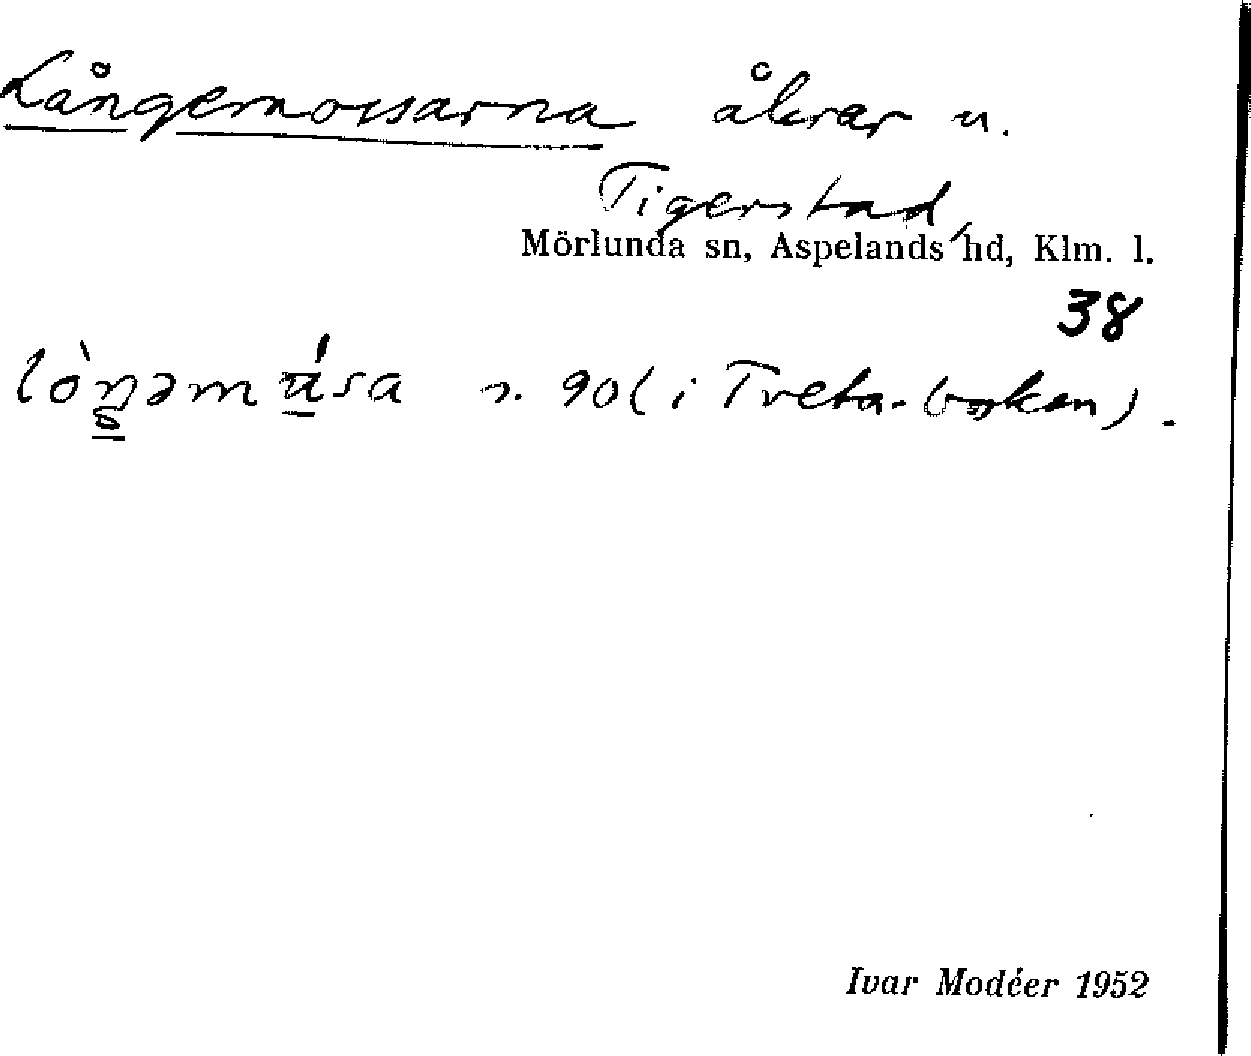 Långemossarna åkrar u.
Tigerstad,
Mörlunda sn, Aspelands hd, Klm. l.
38
s. 90 (i Treta-boken).
Ivar Modéer 1952